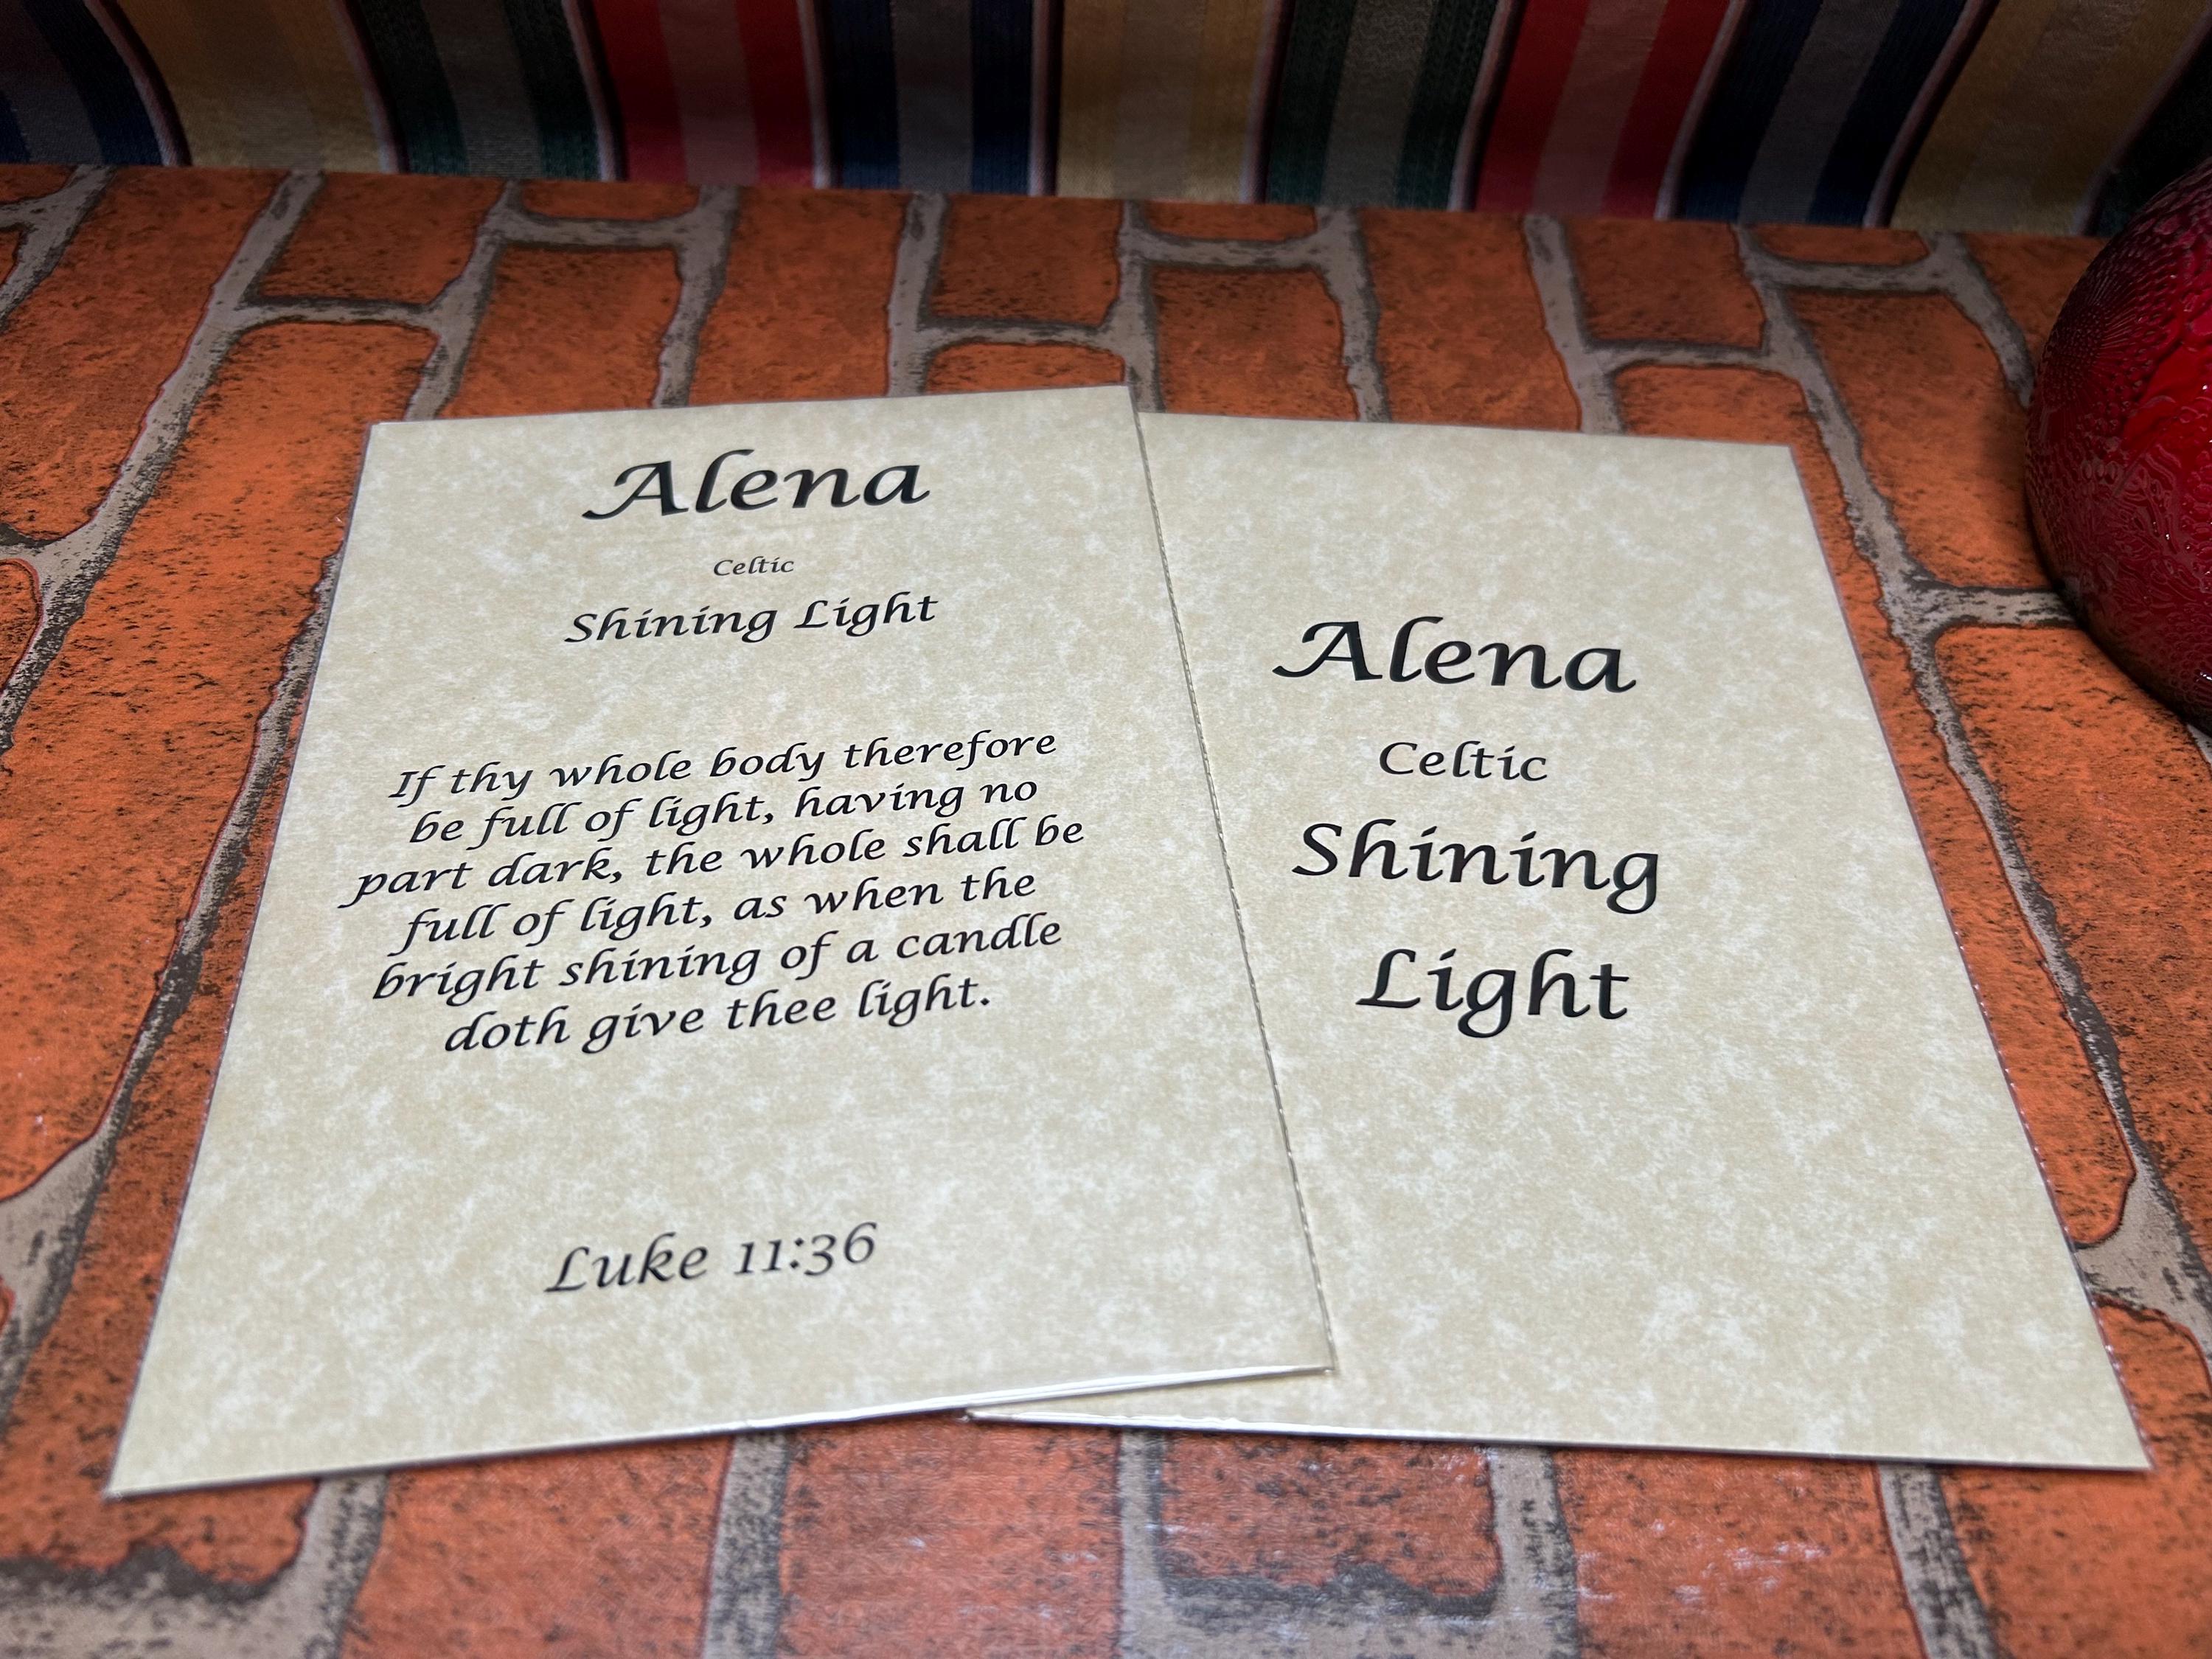 Alena
Celtic
Shining Light
If thy whole body therefore
be full of light, having no
part dark, the whole shall be
full of light, as when the
bright shining of a candle
doth give thee light.
Luke 11:36
Alena
Celtic
Shining
Light